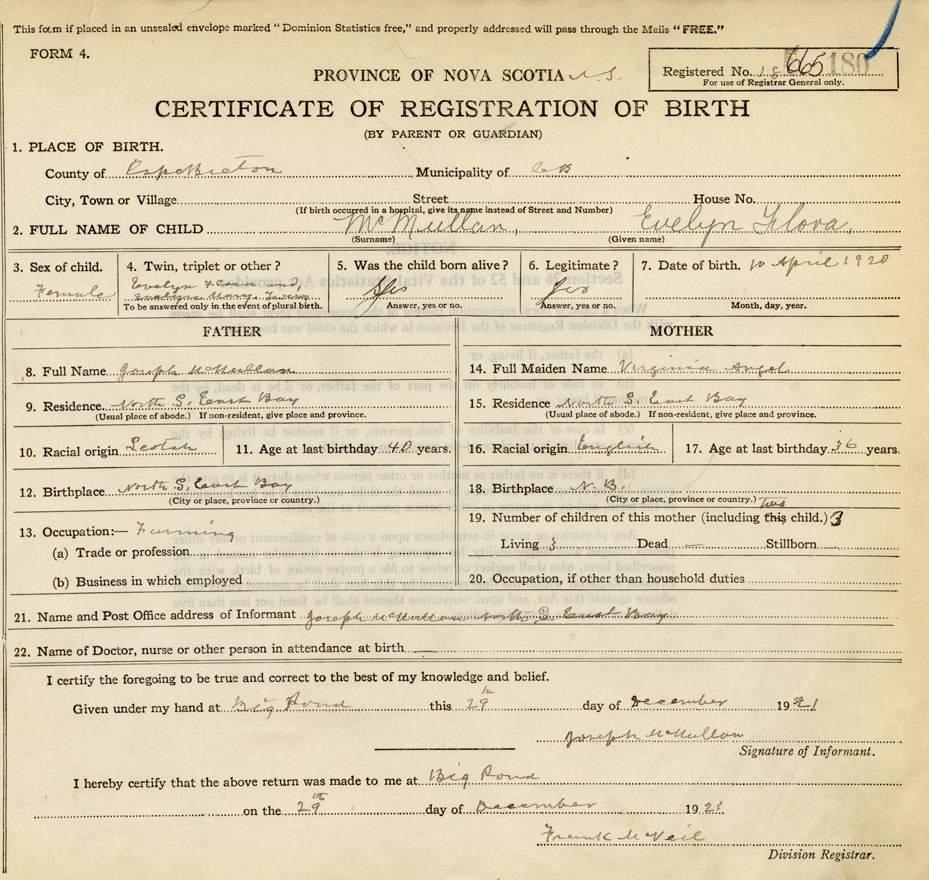 This form if placed in an unsealed envelope marked "Dominion Statistics free," and properly addressed will pass through the Mails "FREE."
FORM 4.
PROVINCE OF NOVA SCOTIA N.S.
Registered No. 18 665 180
For use of Registrar General only.
CERTIFICATE OF REGISTRATION OF BIRTH
(BY PARENT OR GUARDIAN)
1. PLACE OF BIRTH.
County of Cape Breton Municipality of C B
City, Town or Village Street House No.
(If birth occurred in a hospital, give its name instead of Street and Number)
2. FULL NAME OF CHILD McMullan, Evelyn Flora,
(Surname) (Given name)
3. Sex of child. 4. Twin, triplet or other? 5. Was the child born alive? 6. Legitimate? 7. Date of birth. 10 April 1920
Female Evelyn Flora and, Yes Yes
Mary. Twins
To be answered only in the event of plural birth. Answer, yes or no. Answer, yes or no. Month, day, year.
FATHER MOTHER
8. Full Name Joseph McMullan 14. Full Maiden Name Virginia Angel
9. Residence North S. East Bay 15. Residence North S. East Bay
(Usual place of abode.) If non-resident, give place and province. (Usual place of abode.) If non-resident, give place and province.
10. Racial origin Scotch 11. Age at last birthday 40 years. 16. Racial origin English 17. Age at last birthday 36 years.
12. Birthplace North S. East Bay 18. Birthplace N. B.
(City or place, province or country.) (City or place, province or country.)
13. Occupation:— Farming 19. Number of children of this mother (including this two child.) 3
(a) Trade or profession Living 3 Dead — Stillborn
(b) Business in which employed 20. Occupation, if other than household duties
21. Name and Post Office address of Informant Joseph McMullan North S. East Bay
22. Name of Doctor, nurse or other person in attendance at birth —
I certify the foregoing to be true and correct to the best of my knowledge and belief.
Given under my hand at Big Pond this 29th day of December 1921
Joseph McMullan
Signature of Informant.
I hereby certify that the above return was made to me at Big Pond
on the 29th day of December 1921
Frank McNeil
Division Registrar.